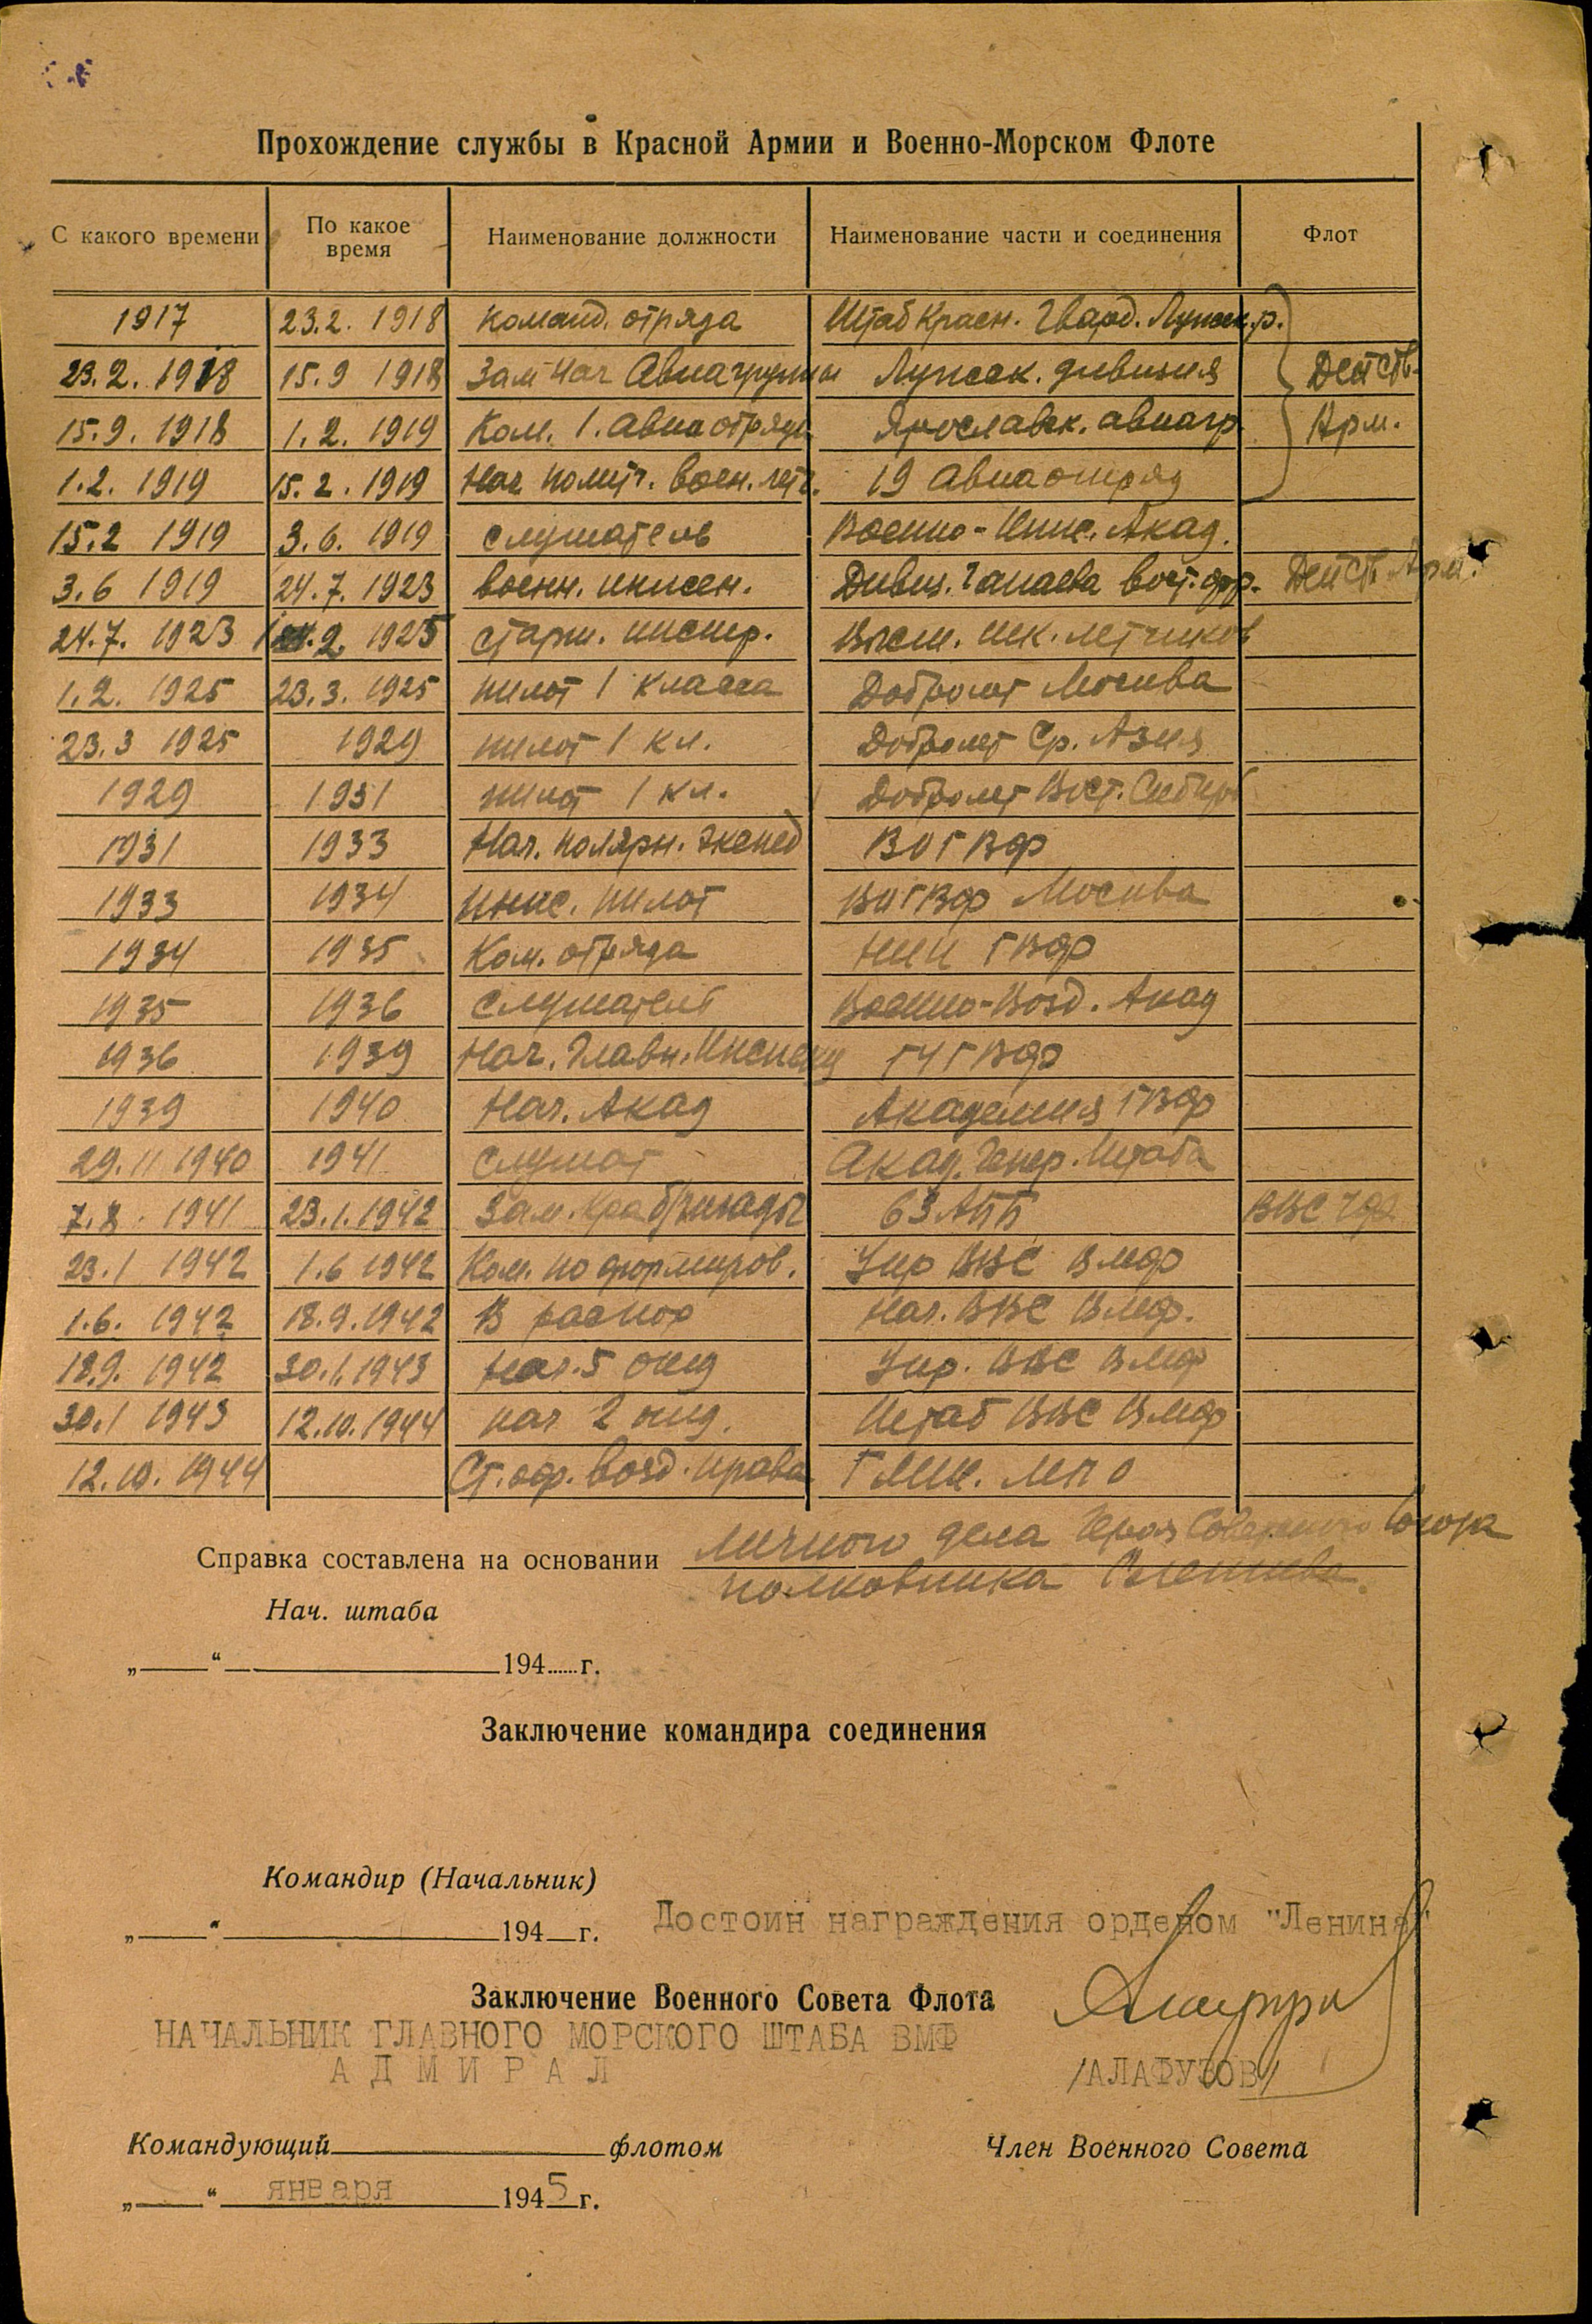 Прохождение службы в Красной Армии и Военно-Морском Флоте
С какого времени По какое время Наименование должности Наименование части и соединения Флот
1917 23.2. 1918 команд. отряда Штаб Красн. Гвард.
23.2. 1918 15.9 1918 Зам Нач Авиагруппы дивизия Действ.
15.9. 1918 1.2. 1919 Ком. 1. авиаотряда Ярославск. авиагр. Арм.
1.2. 1919 15.2. 1919 Нач воен. летч. 19 Авиаотряд
15.2 1919 3.6. 1919 слушатель Военно-Инж. Акад.
3.6 1919 24.7. 1923 военн. инжен. Дивиз. Чапаева вост. фр. Действ. Арм.
24.7. 1923 2. 1925 старш. инстр. Высш. шк. летчиков
1.2. 1925 23.3. 1925 пилот 1 класса Добролет Москва
23.3 1925 1929 пилот 1 кл. Добролет Ср. Азия
1929 1931 пилот 1 кл. Добролет Вост. Сибирь
1931 1933 Нач. полярн. экспед ВОГВФ
1933 1934 инж. пилот ВОГВФ Москва
1934 1935 Ком. отряда НИИ ГВФ
1935 1936 слушатель Военно-Возд. Акад
1936 1939 Нач. Главн. Инспекц ГУГВФ
1939 1940 Нач. Акад Академия ГВФ
29.11 1940 1941 слушат Акад. Генер. Штаба
7.8. 1941 23.1.1942 Зам. к-ра бригады 63 АББ ВВС ЧФ
23.1 1942 1.6 1942 Ком. по формиров. Упр ВВС ВМФ
1.6. 1942 18.9.1942 В распор Нач. ВВС ВМФ.
18.9. 1942 30.1.1943 Нач. 5 отд Упр. ВВС ВМФ
30.1 1943 12.10.1944 нач 2 отд. Штаб ВВС ВМФ
12.10. 1944 Ст. оф. возд. права
Справка составлена на основании личного дела Героя Советского Союза
полковника
Нач. штаба
„ “ 194 г.
Заключение командира соединения
Командир (Начальник)
„ “ 194 г. Достоин награждения орденом "Ленина"
Заключение Военного Совета Флота
НАЧАЛЬНИК ГЛАВНОГО МОРСКОГО ШТАБА ВМФ
АДМИРАЛ /АЛАФУЗОВ/
Командующий флотом Член Военного Совета
„ “ января 1945 г.